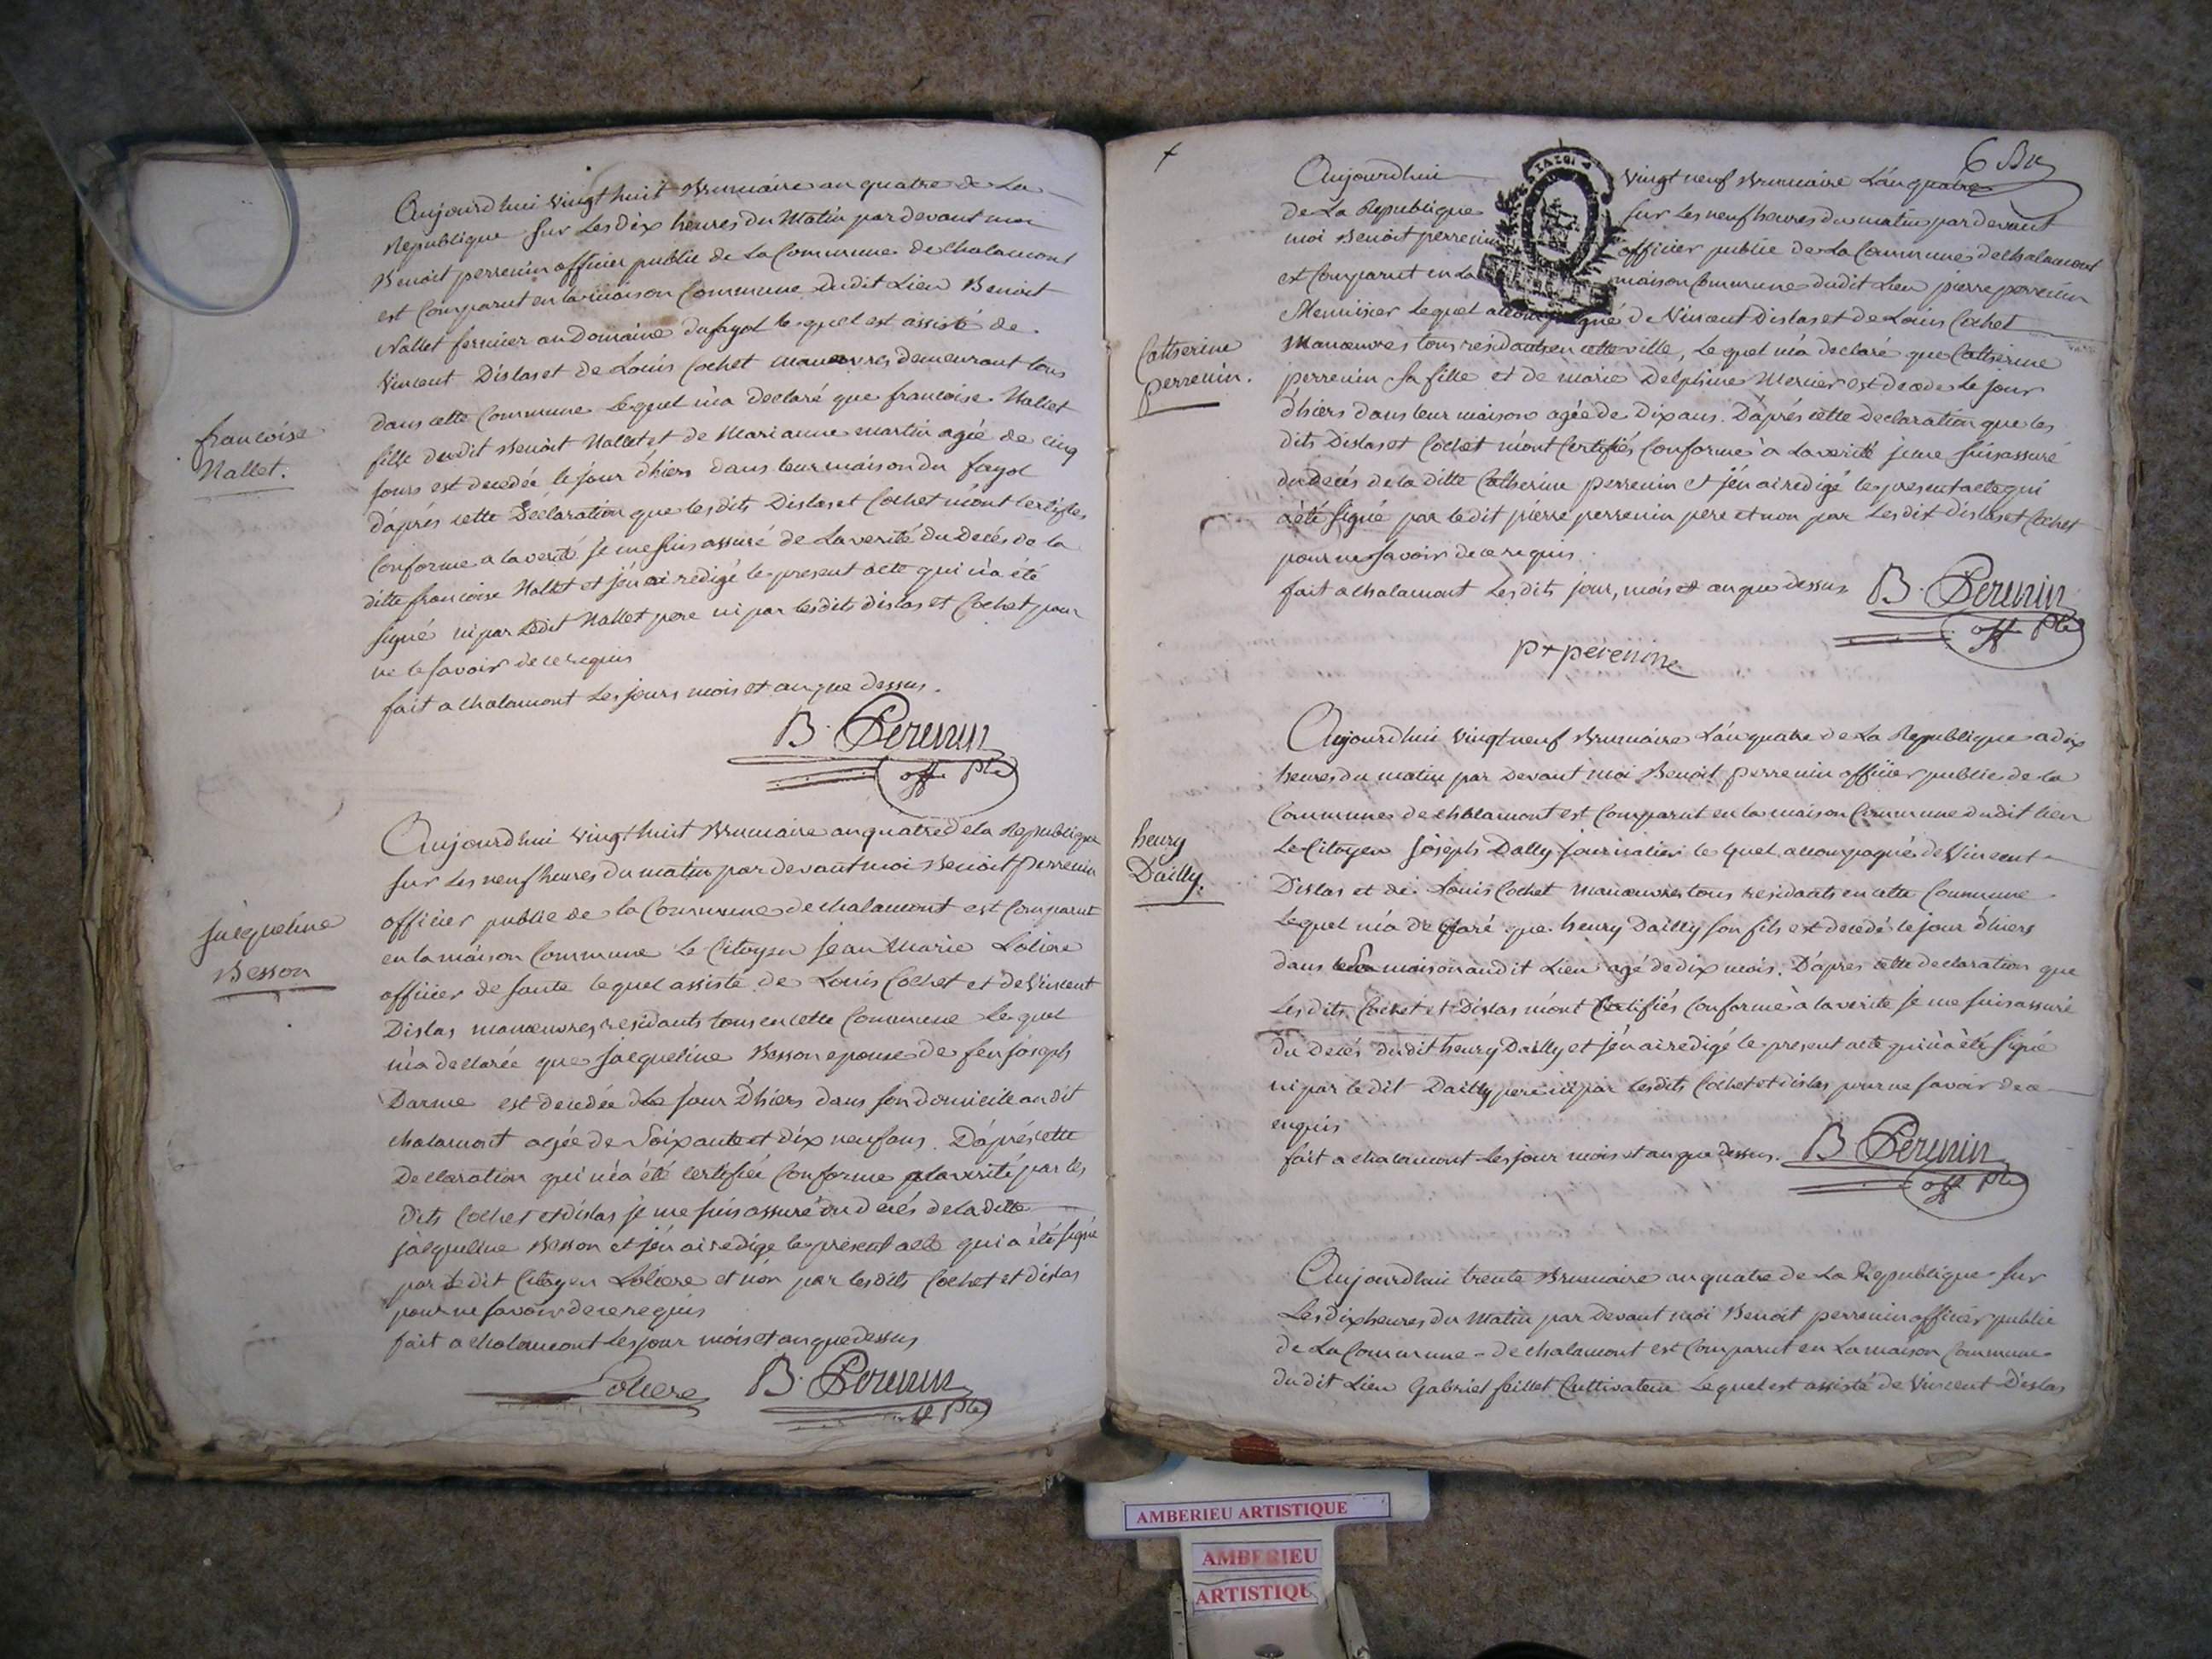 Aujourdhui vingt huit Brumaire an quatre de La
Republique sur Les dix heures du Matin par devant moi
Benoit perrenin officier public de La Commune de chalamont
est Comparut en la maison Commune du dit Lieu Benoit
Nallet fermier au Domaine du fayol le quel est assisté de
Vincent Dislas et de Louis Cochet manœuvres demeurant tous
dans cette Commune Lequel m'a declaré que francoise Nallet
fille du dit Benoit Nallet et de Marianne martin agée de cinq
jours est decedée le jour d'hiers dans leur maison du fayol
francoise
Nallet.
D'aprés cette Déclaration que les dits Dislas et Cochet m'ont certifiés
Conforme a la verité je me suis assuré de La verité du Decés de la
ditte francoise Nallet et j'en ai redigé le present acte qui n'a été
signé ni par Ledit Nallet pere ni par les dits dislas et Cochet pour
ne le savoir de ce requis
fait a chalamont Les jours mois et an que dessus.
B. Perenin
off. plc
Aujourd hui vingt huit Brumaire an quatre de la Republique
sur Les neuf heures du matin par devant moi Benoit perrenin
officier public de la Commune de chalamont est Comparut
en la maison Commune Le Citoyen Jean Marie Loliere
officier de sante lequel assisté de Louis Cochet et de Vincent
Dislas manœuvres residants tous en cette Commune Le quel
m'a declarée que jacqueline Besson epouse de feu joseph
Darme est decedée le jour D'hiers dans son domicile au dit
jacqueline
Besson
chalamont agée de Soixante et dix neuf ans. D'aprés cette
Declaration qui m'a été certifiée Conforme a la verité par les
dits Cochet et dislas je me suis assuré du decés de la ditte
jacqueline Besson et j'en ai redige le present acte qui a été signé
par le dit Citoyen Loliere et non par les dits Cochet et dislas
pour ne savoir de ce requis
fait a chalamont Les jour mois et an que dessus
Loliere B. Perenin
off plc
6 Bre
Aujourdhui vingt neuf Brumaire L'an quatre
de La Republique sur Les neuf heures du matin par devant
moi Benoit perrenin officier public de La Commune de chalamont
est Comparut en La maison Commune du dit Lieu pierre perrenin
Menuisier Lequel accompagné de Vincent Dislas et de Louis Cochet
Manœuvres tous residants en cette ville, Le quel m'a declaré que Catherine
perrenin sa fille et de marie Delphine Mercier est decede Le jour
d'hiers dans leur maison agée de Dix ans. D'aprés cette Declaration que les
Catherine
perrenin.
dits Dislas et Cochet m'ont Certifiés Conforme à La verité je me suis assuré
du decés de la ditte Catherine perrenin et j'en ai redigé le present acte qui
a été signé par le dit pierre perrenin pere et non par Les dit dislas et Cochet
pour ne savoir de ce requis.
fait a chalamont Les dits jour, mois et an que dessus
B. Perenin
off plc
p + perenine
Aujourd'hui vingt neuf Brumaire L'an quatre de La Republique a dix
heures du matin par Devant moi Benoit perrenin officier public de la
Commune de chalamont est Comparut en la maison Commune du dit lieu
Le Citoyen joseph Dally le quel accompagné de Vincent
Dislas et de Louis Cochet manœuvres tous residants en cette Commune
Lequel m'a declaré que henry Dailly son fils est decedé le jour d'hiers
henry
Dailly.
dans sa maison au dit Lieu agé de dix mois. D'apres cette declaration que
Les dits Cochet et Dislas m'ont Certifiés Conforme à la verite je me suis assuré
du decés du dit henry Dailly et j'en ai redigé le present acte qui n'a été signé
ni par le dit Dailly pere ni par les dits Cochet et dislas pour ne savoir de ce
enquis
fait a chalamont Les jour mois et an que dessus.
B Perenin
off plc
Aujourdhui trente Brumaire an quatre de La Republique sur
Les dix heures du Matin par Devant moi Benoit perrenin officier public
de La Commune de chalamont est Comparut en La maison Commune
du dit Lieu Gabriel feillet Cultivateur Le quel est assisté de Vincent Dislas
AMBERIEU ARTISTIQUE
AMBERIEU
ARTISTIQU